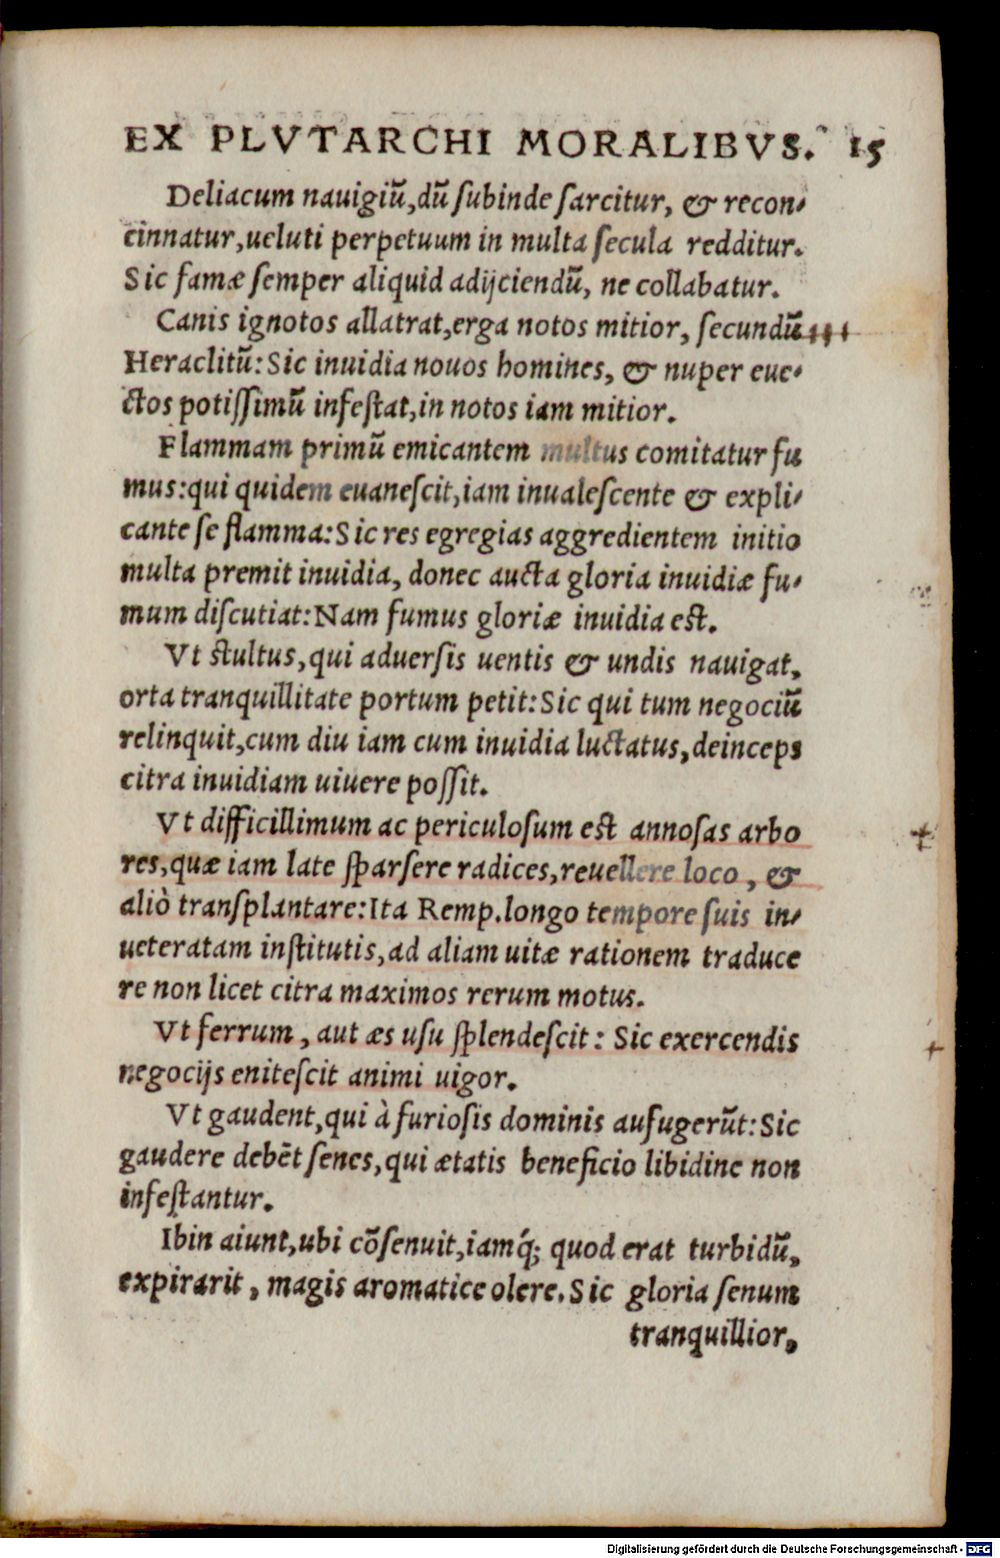 EX PLVTARCHI MORALIBVS. 15
Deliacum nauigiũ,dũ ſubinde ſarcitur, & recon-
cinnatur,ueluti perpetuum in multa ſecula redditur.
Sic famæ ſemper aliquid adijciendũ, ne collabatur.
Canis ignotos allatrat,erga notos mitior, ſecundũ
Heraclitũ:Sic inuidia nouos homines, & nuper eue-
ctos potiſſimũ infeſtat,in notos iam mitior.
Flammam primũ emicantem multus comitatur fu
mus:qui quidem euaneſcit,iam inualeſcente & expli-
cante ſe flamma:Sic res egregias aggredientem initio
multa premit inuidia, donec aucta gloria inuidiæ fu-
mum diſcutiat:Nam fumus gloriæ inuidia eſt.
Vt ſtultus,qui aduerſis uentis & undis nauigat,
orta tranquillitate portum petit:Sic qui tum negociũ
relinquit,cum diu iam cum inuidia luctatus,deinceps
citra inuidiam uiuere poſſit.
Vt difficillimum ac periculoſum eſt annoſas arbo
res,quæ iam late ſparſere radices,reuellere loco, &
aliò tranſplantare:Ita Remp.longo tempore ſuis in-
ueteratam inſtitutis,ad aliam uitæ rationem traduce
re non licet citra maximos rerum motus.
Vt ferrum, aut æs uſu ſplendeſcit: Sic exercendis
negocijs eniteſcit animi uigor.
Vt gaudent,qui à furioſis dominis aufugerũt:Sic
gaudere debẽt ſenes,qui ætatis beneficio libidine non
infeſtantur.
Ibin aiunt,ubi cõſenuit,iamq́; quod erat turbidũ,
expirarit, magis aromatice olere.Sic gloria ſenum
tranquillior,
Digitalisierung gefördert durch die Deutsche Forschungsgemeinschaft - DFG